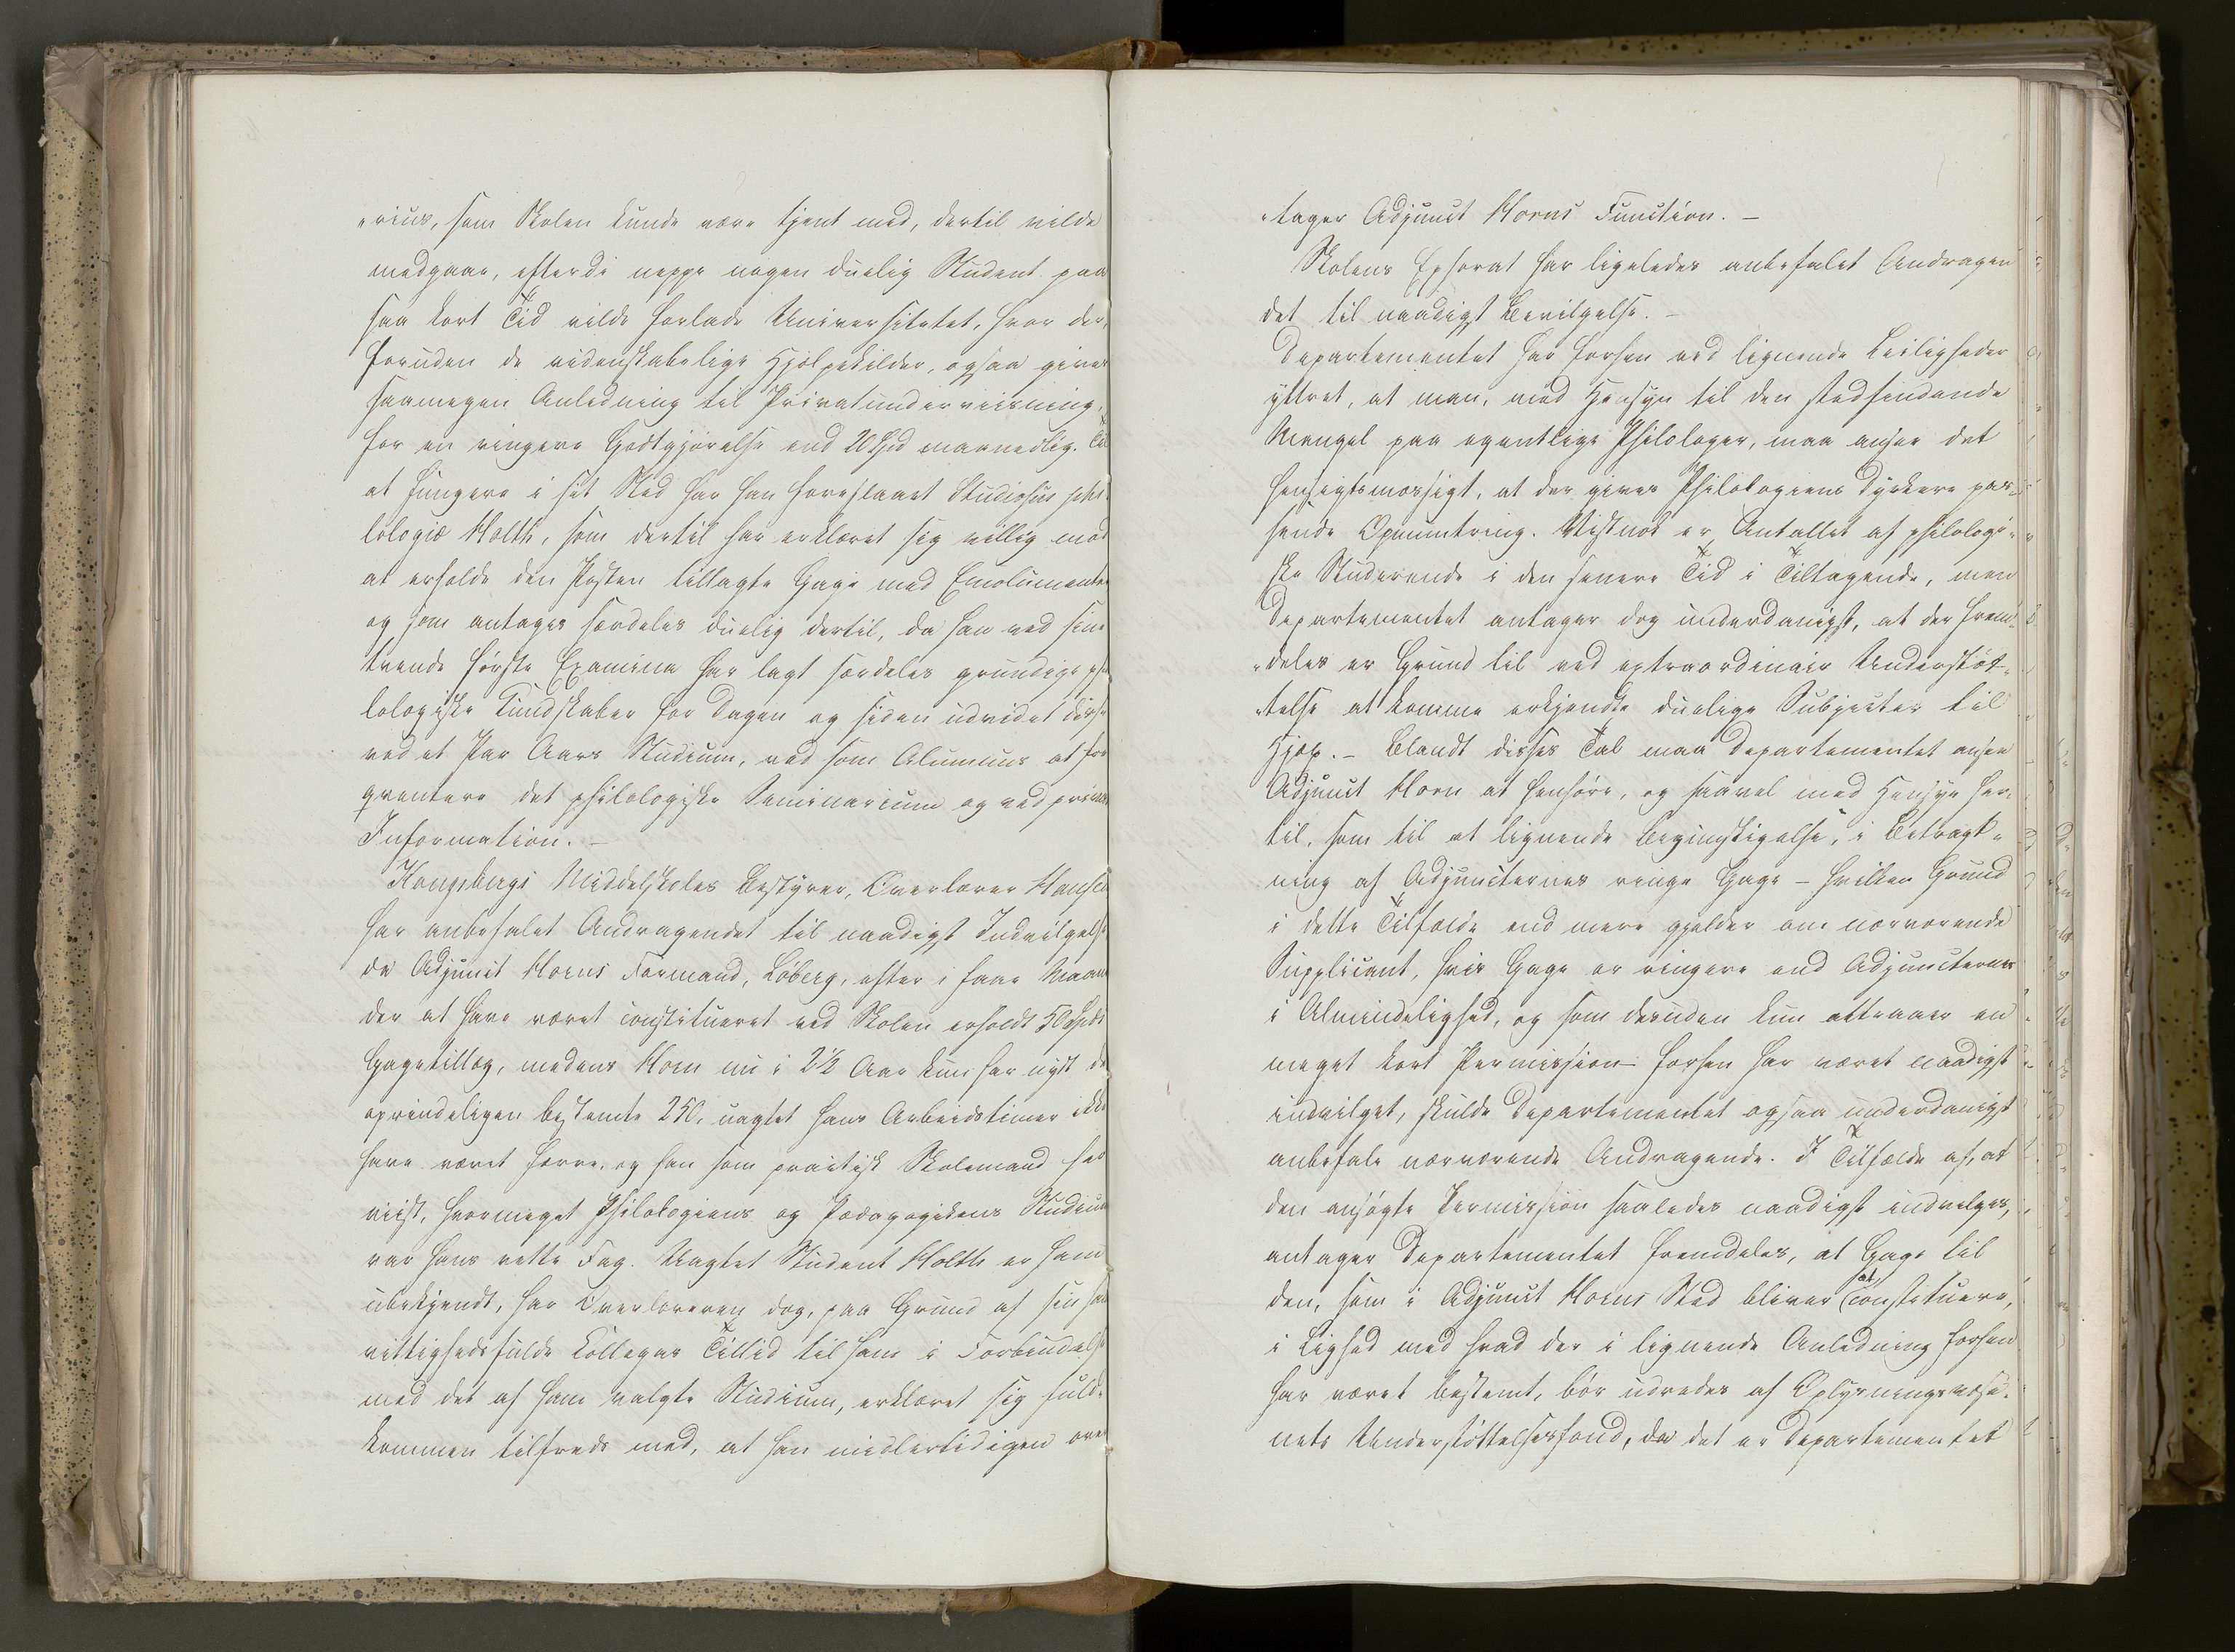 „rius, som Skolen kunde være tjent med, dertil vilde
medgaae, efterdi neppe nogen duelig Student paa
saa kort Tid vilde forlade Universitetet, hvor der,
foruden de videnskabelige Hjelpekilder, ogsaa gives
saamegen Anledning til Privatunderviisning,
for en ringere Godtgjørelse end 20 Spd maanedlig. Til
at fungere i sit Sted har han foreslaaet Studiosus phi-
lologiæ Holth, som dertil har erklæret sig villig mod
at erholde den Posten tillagte Gage med Emolumenter
og som antages særdeles duelig dertil, da han ved sine
tvende første Examina har lagt særdeles grundige phi
lologiske Kundskaber for Dagen og siden udvidet disse
ved et Par Aars Studium, ved som Alumnus at fre
qventere det philologiske Seminarium og ved privat
Information. –
Kongsbergs Middelskoles Bestyrer, Overlærer Hansen
har anbefalet Andragendet til naadigst Indvilgelse
da Adjunct Horns Formand, Løberg, efter i faae Maane
der at have været constitueret ved Skolen erholdt 50 Spds
Gagetillæg, medens Horn nu i 2½ Aar kun har nydt de
oprindeligen bestemte 250, uagtet hans Arbeidstimer ikke
have været færre, og han som practisk Skolemand har
viist, hvormeget Philologiens og Pædagogikens Studium
var hans rette Fag. Uagtet Student Holth er ham
ubekjendt, har Overlæreren dog, paa Grund af sin sam
vittighedsfulde Collegas Tillid til ham i Forbindelse
med det af ham valgte Studium, erklæret sig fuld-
kommen tilfreds med, at han midlertidigen over
„tager Adjunct Horns Function. –
Skolens Ephorat har ligeledes anbefalet Andragen
det til naadigst Bevilgelse. –
Departementet har forhen ved lignende Leiligheder
yttret, at man, med Hensyn til den stedfindende
Mangel paa egentlige Philologer, maa ansee det
hensigtsmæssigt, at der gives Philologiens Dyrkere pas-
sende Opmuntring. Vistnok er Antallet af philologi-
ske Studerende i den senere Tid i Tiltagende, men
Departementet antager dog underdanigst, at der frem-
„deles er Grund til ved extraordinair Understøt-
„telse at komme erkjendte duelige Subjecter til
Hjelp. – Blandt disses Tal maa Departementet ansee
Adjunct Horn at henhøre, og saavel med Hensyn her-
til, som til at lignende Begunstigelse, i Betragt-
ning af Adjuncternes ringe Gage – hvilken Grund
i dette Tilfælde end mere gjelder om nærværende
Supplicant, hvis Gage er ringere end Adjuncternes
i Almindelighed, og som desuden kun attraaer en
meget kort Permission – forhen har været naadigst
indvilget, skulde Departementet ogsaa underdanigst
anbefale nærværende Andragende. I Tilfælde af, at
den ansøgte Permission saaledes naadigst indvilges,
antager Departementet fremdeles, at Gage til
den, som i Adjunct Horns Sted bliver at constituere,
i Lighed med hvad der i lignende Anledning forhen
har været bestemt, bør udredes af Oplysningsvæse-
nets Understøttelsesfond, da det er Departementet